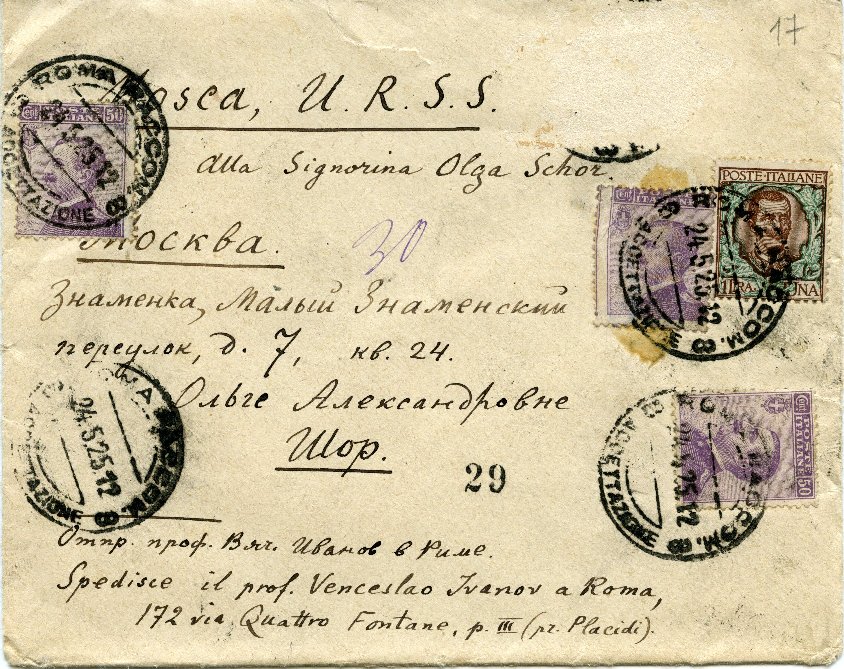 17
Mosca, U.R.S.S.
Alla Signorina Olga Schor.
Москва.
30
Знаменка, Малый Знаменский
переулок, д. 7, кв. 24.
Ольге Александровне
Шор.
29
Отпр. проф. Вяч. Иванов в Риме.
Spedisce il prof. Venceslao Ivanov a Roma,
172 via Quattro Fontane, p. III (pr. Placidi).
POSTE ITALIANE
50
ROMA
24.5.25.12
ACCETTAZIONE
POSTE ITALIANE
1 LIRA
ROMA
24.5.25.12
ROMA
24.5.25.12
ACCETTAZIONE
POSTE ITALIANE
50
ROMA
ACCETTAZIONE